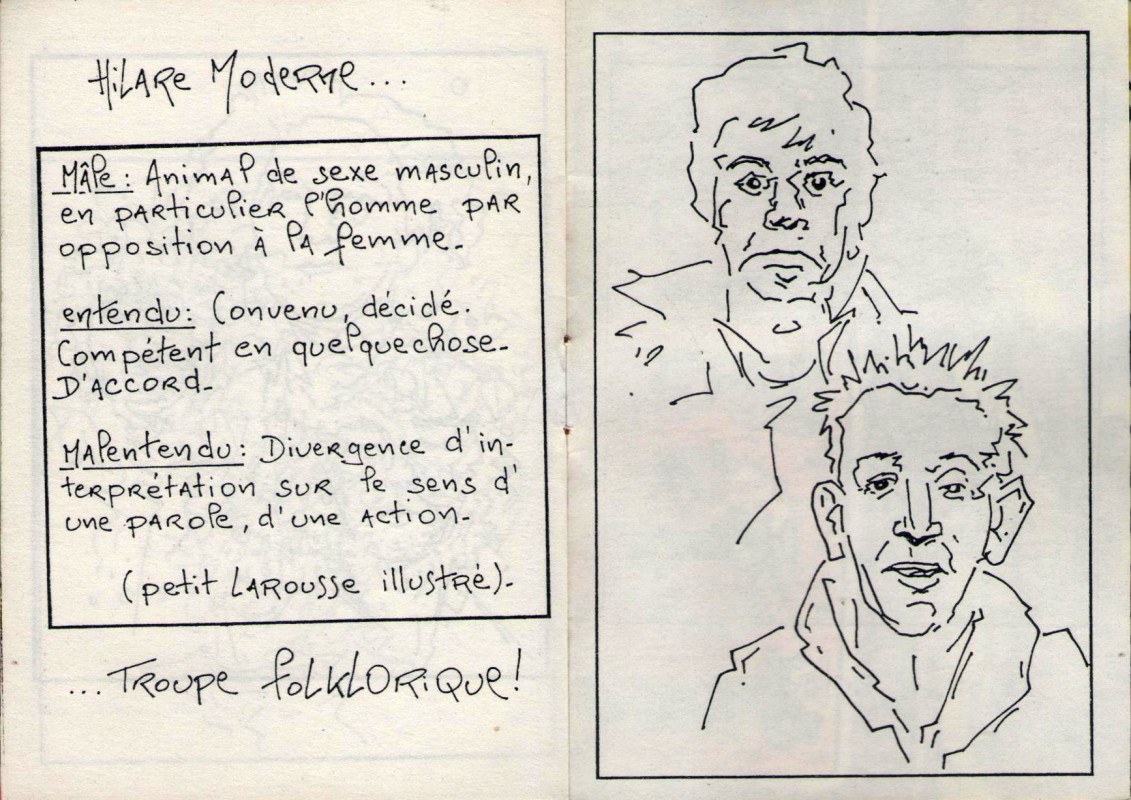 Hilare Moderne...
Mâle : Animal de sexe masculin,
en particulier l'homme par
opposition à la femme.
entendu : Convenu, décidé.
Compétent en quelque chose.
D'accord.
Malentendu : Divergence d'in-
terprétation sur le sens d'
une parole, d'une action.
(petit Larousse illustré).
... Troupe folklorique !